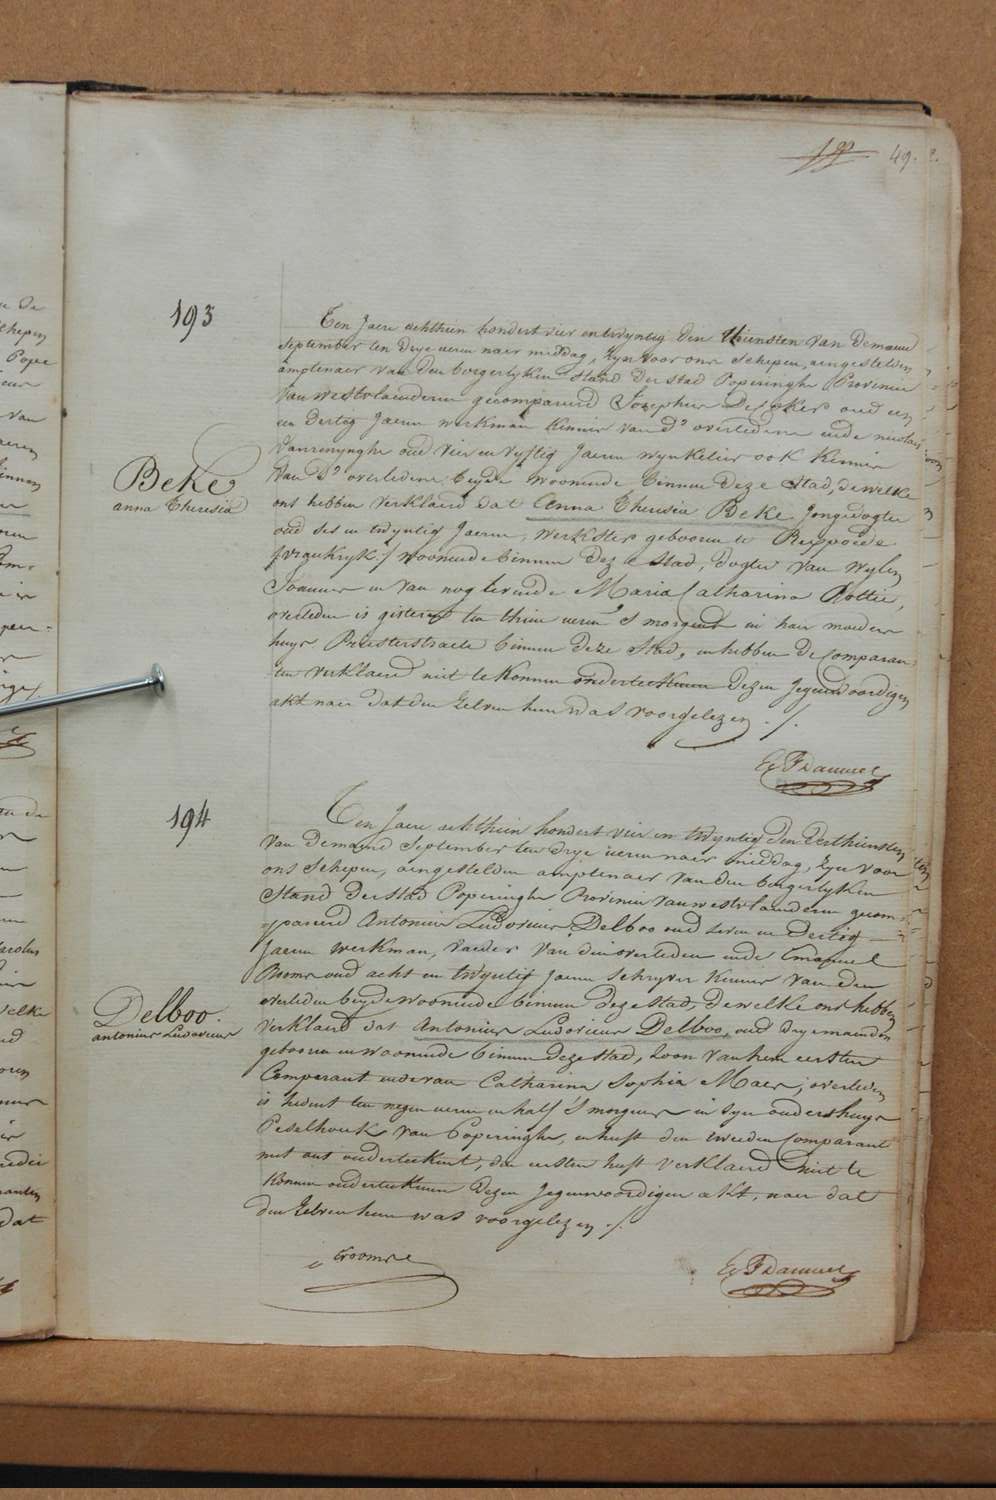 49.
193
Ten Jaere achthien hondert vier en twyntig den thiensten van de maend
September ten drye ueren naer middag, zyn voor ons Schepen, aengestelden
amptenaer van den borgerlyken Stand der stad Poperinghe Provincie
van westvlaenderen gecompareerd Josephus De oud een
en dertig Jaeren werkman kennis van d' overledene ende nicolais
Vanrenynghe oud vier en vyftig Jaeren wynkelier ook kennis
van d' overledene, beyde woonende binnen deze Stad, dewelke
ons hebben verklaerd dat Anna Theresia Beke Jonge dogter
oud ses en twyntig Jaeren, werkster gebooren te Rexpoede
(vrankryk) woonende binnen deze stad, dogter van wylen
Joannes en van nog levende Maria Catharina Rottie,
overleden is gisteren ten thien ueren 's morgens in haer moeders
huys Priesterstraete binnen deze Stad, en hebben de Comparan-
ten verklaerd niet te konnen onderteekenen dezen Jegenwoordigen
akt naer dat den zelven hun was voorgelezen ./.
Beke
anna Theresia
194
Ten Jaere achthien hondert vier en twyntig den derthiensten
van de maend September ten drye ueren naer middag, zyn voor
ons Schepen, aengestelden amptenaer van den borgerlyken
Stand der Stad Poperinghe Provincie van westvlaenderen gecom-
pareerd Antonius Ludovicus Delboo oud seven en dertig
Jaeren werkman, vaeder van den overleden ende Emanuel
oud acht en twyntig Jaeren Schryver kennis van den
overleden beyde woonende binnen deze stad, dewelke ons hebben
verklaerd dat Antonius Ludovicus Delboo, oud dry maenden
gebooren en woonende binnen deze stad, zoon van hem eersten
Comparant ende van Catharina Sophia Maes; overleden
is hedent ten negen ueren en half 's morgens in syn ouders huys
Peselhoek van Poperinghe, en heeft den tweeden Comparant
met ons onderteekent, den eersten heeft verklaerd niet te
konnen onderteekenen dezen Jegenwoordigen akt, naer dat
den zelven hun was voorgelezen ./.
Delboo
antonius Ludovicus